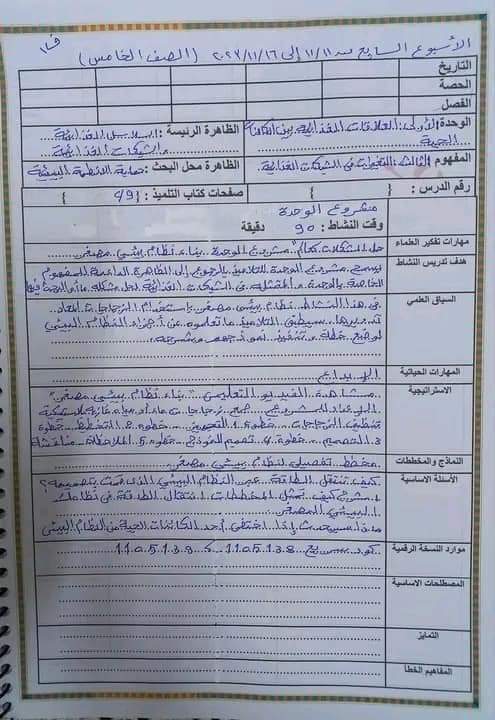 الأسبوع السابع من ١١/١١ إلى ٢٠٢٣/١١/١٦ (الصف الخامس)
التاريخ
الحصة
الفصل
الوحدة: الأولى: العلاقات الغذائية بين الكائنات الحية
الظاهرة الرئيسة: السلاسل الغذائية والشبكات الغذائية
المفهوم: الثالث: التغيرات في الشبكات الغذائية
الظاهرة محل البحث: حماية الأنظمة البيئية
رقم الدرس: { }
صفحات كتاب التلميذ: { 49 }
مشروع الوحدة
وقت النشاط: 90 دقيقة
مهارات تفكير العلماء
حل المشكلات كعالم "مشروع الوحدة .. بناء نظام بيئي مصغر"
هدف تدريس النشاط
يسمح مشروع الوحدة للتلاميذ بالرجوع إلى الظاهرة الداعمة للمفهوم
الخاصة بالوحدة والمتمثلة في الشبكات الغذائية لحل مشكلة ما أو البحث فيها
السياق العلمي
في هذا النشاط نظام بيئي مصغر باستخدام الزجاجات المعاد
تدويرها سيطبق التلاميذ ما تعلموه عن أجزاء النظام البيئي
لوضع خطة وتنفيذ نموذجهم وشرحه.
المهارات الحياتية
الإبداع
الاستراتيجية
مشاهدة الفيديو التعليمي "بناء نظام بيئي مصغر"
الإعداد للمشروع
تنظيف الزجاجات خطوة 1. التجهيز خطوة 2. التخطيط خطوة
3. التصميم خطوة 4. تصميم النموذج خطوة 5. الملاحظة .. مناقشة
النماذج والمخططات
مخطط تفصيلي لنظام بيئي مصغر
الأسئلة الاساسية
كيف تنتقل الطاقة عبر النظام البيئي الذي قمت بتصميمه؟
اشرح كيف تمثل المخططات انتقال الطاقة في نظامك
البيئي المصغر
ماذا سيحدث إذا اختفى أحد الكائنات الحية من النظام البيئي
موارد النسخة الرقمية
كود سريع 1105138 ، 1105139
المصطلحات الاساسية
التمايز
المفاهيم الخطأ